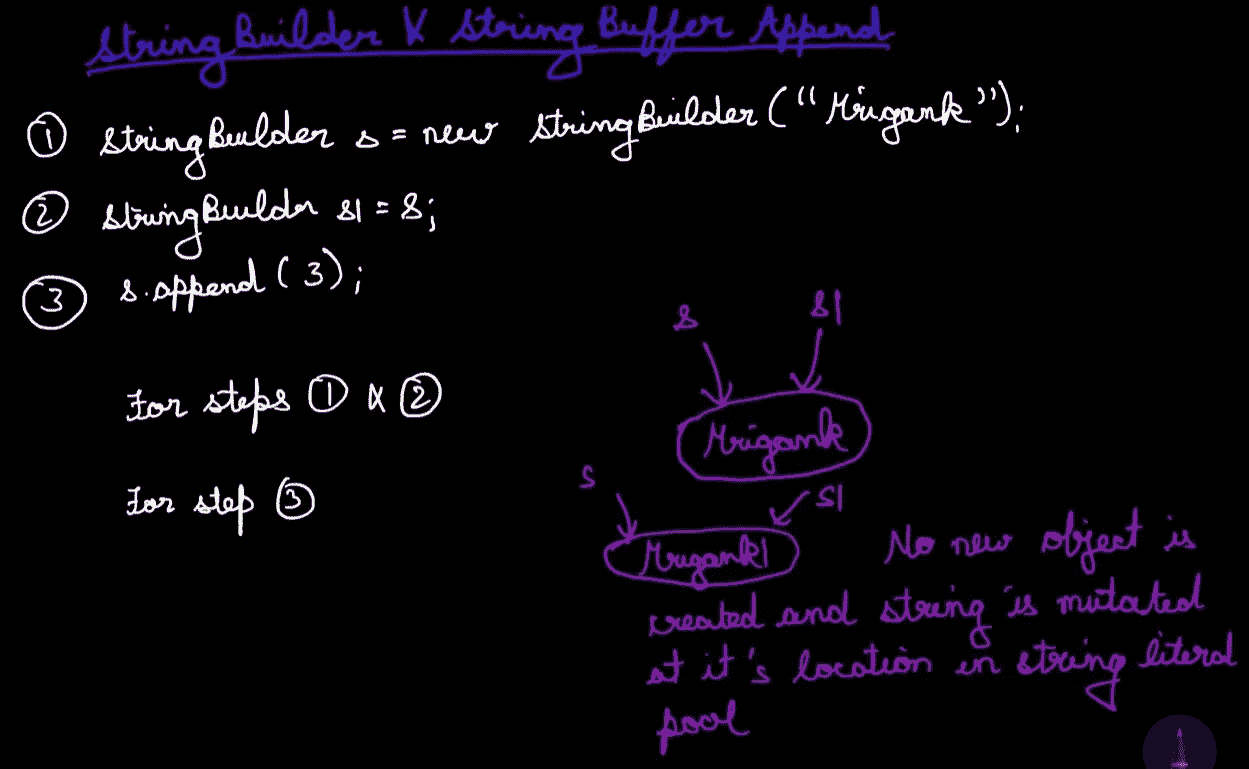 StringBuilder & StringBuffer Append
① StringBuilder s = new StringBuilder("Mrigank");
② StringBuilder s1 = s;
③ s.append(3);
s s1
For steps ① & ②
Mrigank
For step ③
s s1
Mrigank1
No new object is
created and string is mutated
at it's location in string literal
pool